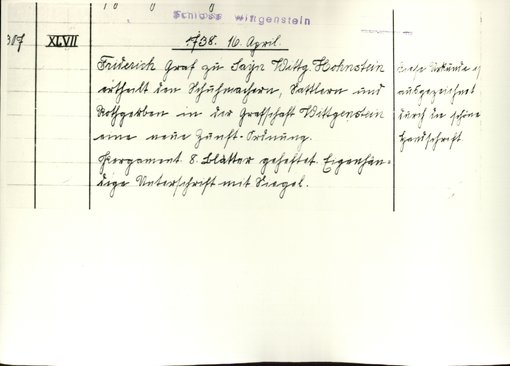 Schloss Wittgenstein
307 XLVII 1738. 16. April.
Friderich Graf zu Sayn Wittg. Hohnstein
ertheilt den Schuhmachern, Sattlern und
Rothgerbern in der Grafschaft Wittgenstein
eine neue Zunft-Ordnung.
Pergament 8. Blätter geheftet. Eigenhän-
dige Unterschrift mit Siegel.
Diese Urkunde ist
ausgezeichnet
durch die schöne
Handschrift